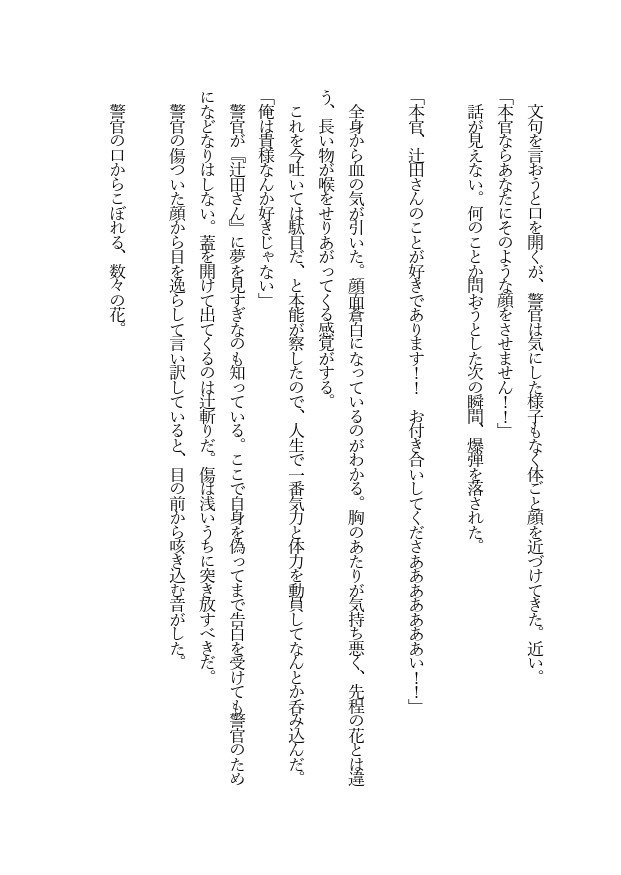 文句を言おうと口を開くが、警官は気にした様子もなく体ごと顔を近づけてきた。近い。
「本官ならあなたにそのような顔をさせません！！」
　話が見えない。何のことか問おうとした次の瞬間、爆弾を落された。
「本官、辻田さんのことが好きであります！！　お付き合いしてくださあああああああい！！」
　全身から血の気が引いた。顔面蒼白になっているのがわかる。胸のあたりが気持ち悪く、先程の花とは違
う、長い物が喉をせりあがってくる感覚がする。
　これを今吐いては駄目だ、と本能が察したので、人生で一番気力と体力を動員してなんとか呑み込んだ。
「俺は貴様なんか好きじゃない」
　警官が『辻田さん』に夢を見すぎなのも知っている。ここで自身を偽ってまで告白を受けても警官のため
になどなりはしない。蓋を開けて出てくるのは辻斬りだ。傷は浅いうちに突き放すべきだ。
　警官の傷ついた顔から目を逸らして言い訳していると、目の前から咳き込む音がした。
　警官の口からこぼれる、数々の花。